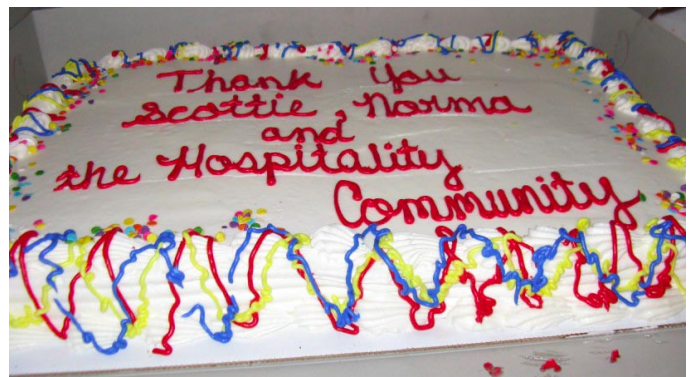 Thank You
Scottie, Norma
and
the Hospitality
Community